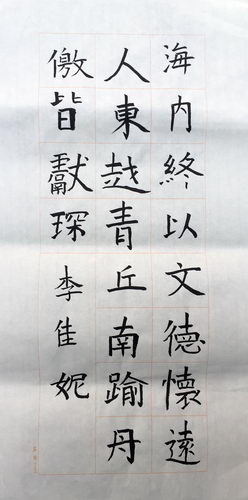 海内終以文德懷遠
人東越青丘南踰丹
徼皆獻琛
李佳妮